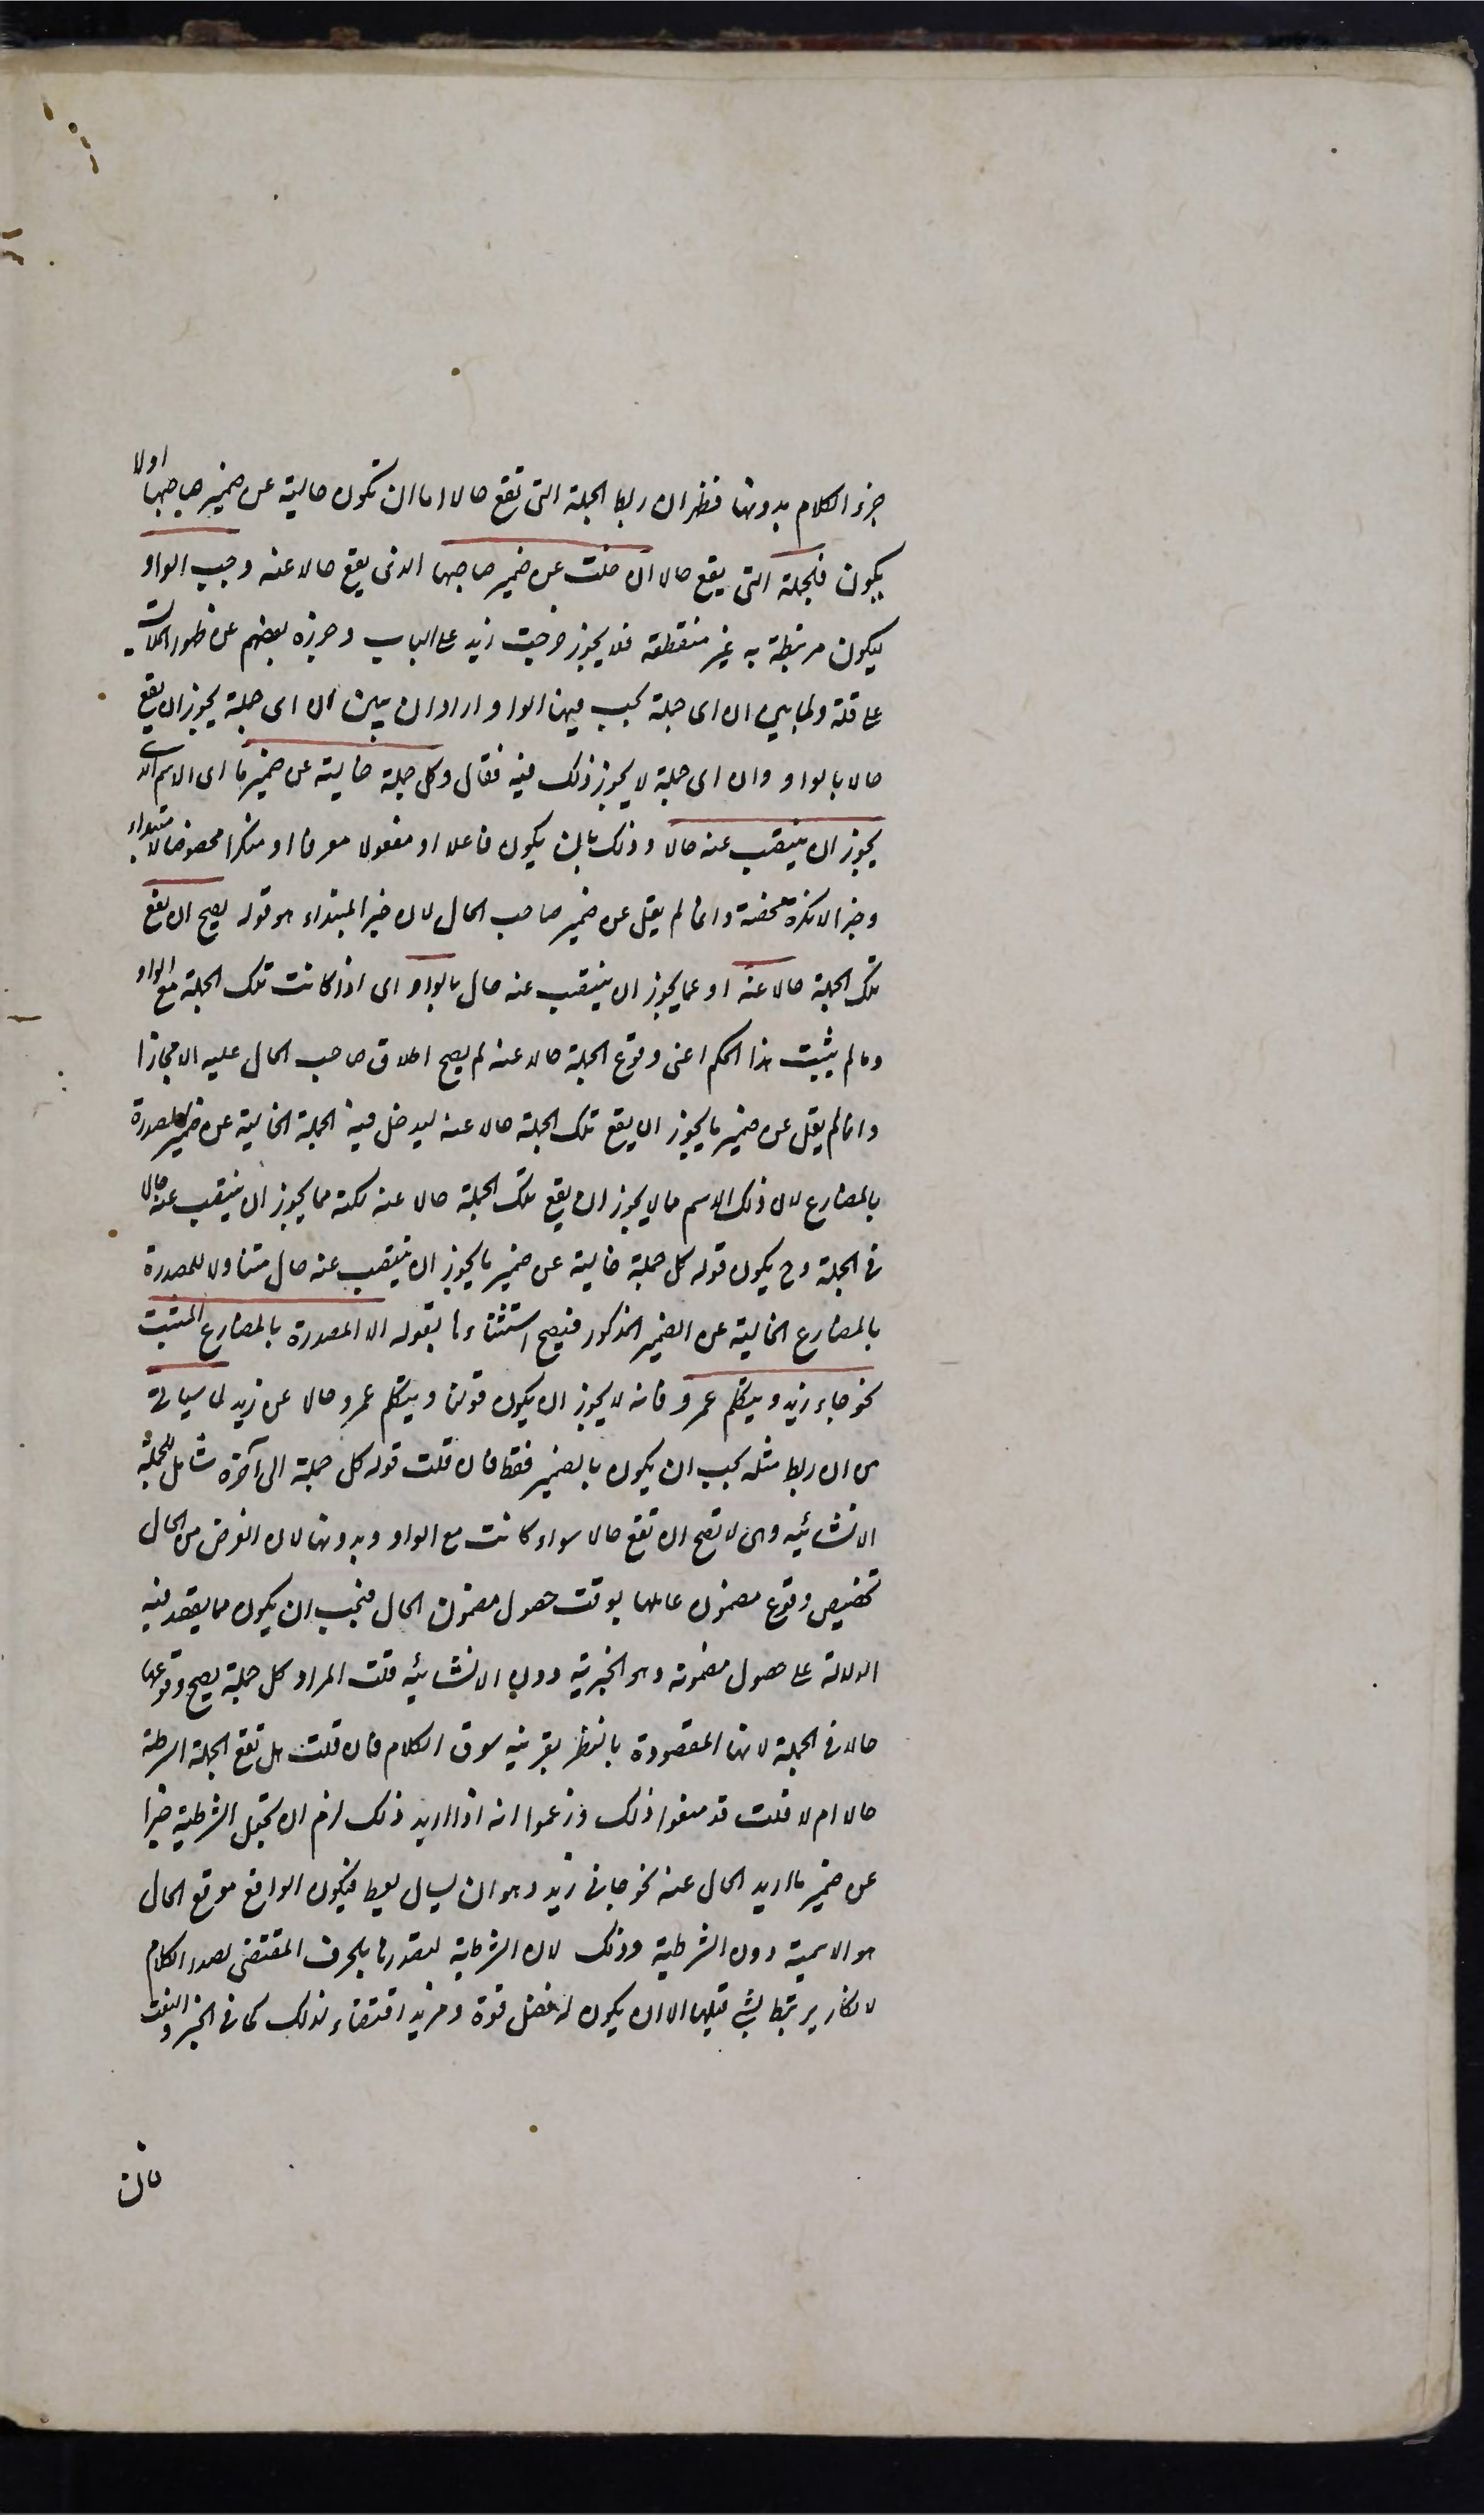 جزء الكلام بدونها فظهر ان ربط الجملة التى تقع حالا اما ان تكون خالية عن ضمير صاحبها اولا
يكون فالجملة التى يقع حالا ان خلت عن ضمير صاحبها الذى يقع حالا عنه وجب الواو
ليكون مرتبطة به غير منقطعة فلا يجوز خرجت زيد على الباب وجوزه بعضهم عن ظهور الملابسة
على قلة ولما بين ان اى جملة يجب فيها الواو اراد ان يبين ان اى جملة يجوز ان يقع
حالا بالواو وان اى جملة لا يجوز ذلك فيه فقال وكل جملة خالية عن ضمير ما اى الاسم الذى
يجوز ان ينتصب عنه حالا وذلك بان يكون فاعلا او مفعولا معرفا او منكرا مخصوصا لا مبتداء
وخبرا لا نكرة محضة وانما لم يقل عن ضمير صاحب الحال لان خبر المبتداء هو قوله يصح ان يقع
تلك الجملة حالا عنه او عما يجوز ان ينتصب عنه حال بالواو اى اذا كانت تلك الجملة مع الواو
وما لم يثبت هذا الحكم اعنى وقوع الجملة حالا عنه لم يصح اطلاق صاحب الحال عليه الا مجازا
وانما لم يقل عن ضمير ما يجوز ان يقع تلك الجملة حالا عنه ليدخل فيه الجملة الخالية عن ضمير المصدرة
بالمضارع لان ذلك الاسم مما لا يجوز ان يقع تلك الجملة حالا عنه لكنه مما يجوز ان ينتصب عنه حالا
فى الجملة وح يكون قوله كل جملة خالية عن ضمير ما يجوز ان ينتصب عنه حال متناولا للمصدرة
بالمضارع الخالية عن الضمير المذكور فيصح استثناءها بقوله الا المصدرة بالمضارع المثبت
نحو جاء زيد ويتكلم عمرو فانه لا يجوز ان يكون قولنا ويتكلم عمرو حالا عن زيد لما سياتى
من ان ربط مثله يجب ان يكون بالضمير فقط فان قلت قوله كل جملة الى آخره شامل للجملة
الانشائيه وهى لا تصح ان تقع حالا سواء كانت مع الواو وبدونها لان الغرض من الحال
تخصيص وقوع مضمون عاملها بوقت حصول مضمون الحال فيجب ان يكون مما يقصد فيه
الدلالة على حصول مضمونه وهو الخبرية دون الانشائيه قلت المراد كل جملة يصح وقوعها
حالا فى الجملة لانها المقصودة بالنظر بقرينه سوق الكلام فان قلت هل تقع الجملة الشرطية
حالا ام لا قلت قد منعوا ذلك وزعموا انه اذا اريد ذلك لزم ان يجعل الشرطية خبرا
عن ضمير ما اريد الحال عنه نحو جانى زيد وهو ان يسال يعط فيكون الواقع موقع الحال
هو الاسمية دون الشرطية وذلك لان الشرطية لتصدرها بالحرف المقتضى لصدر الكلام
لا تكاد يرتبط بشئ قبلها الا ان يكون له فضل قوة ومزيد اقتضاء لذلك كما فى الخبر والنعت
فان